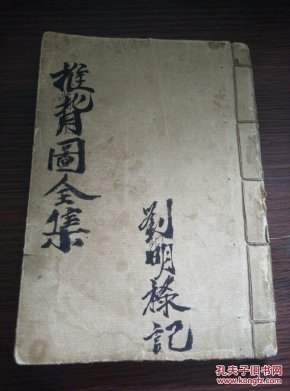 推背圖全集
劉明祿記
孔夫子旧书网